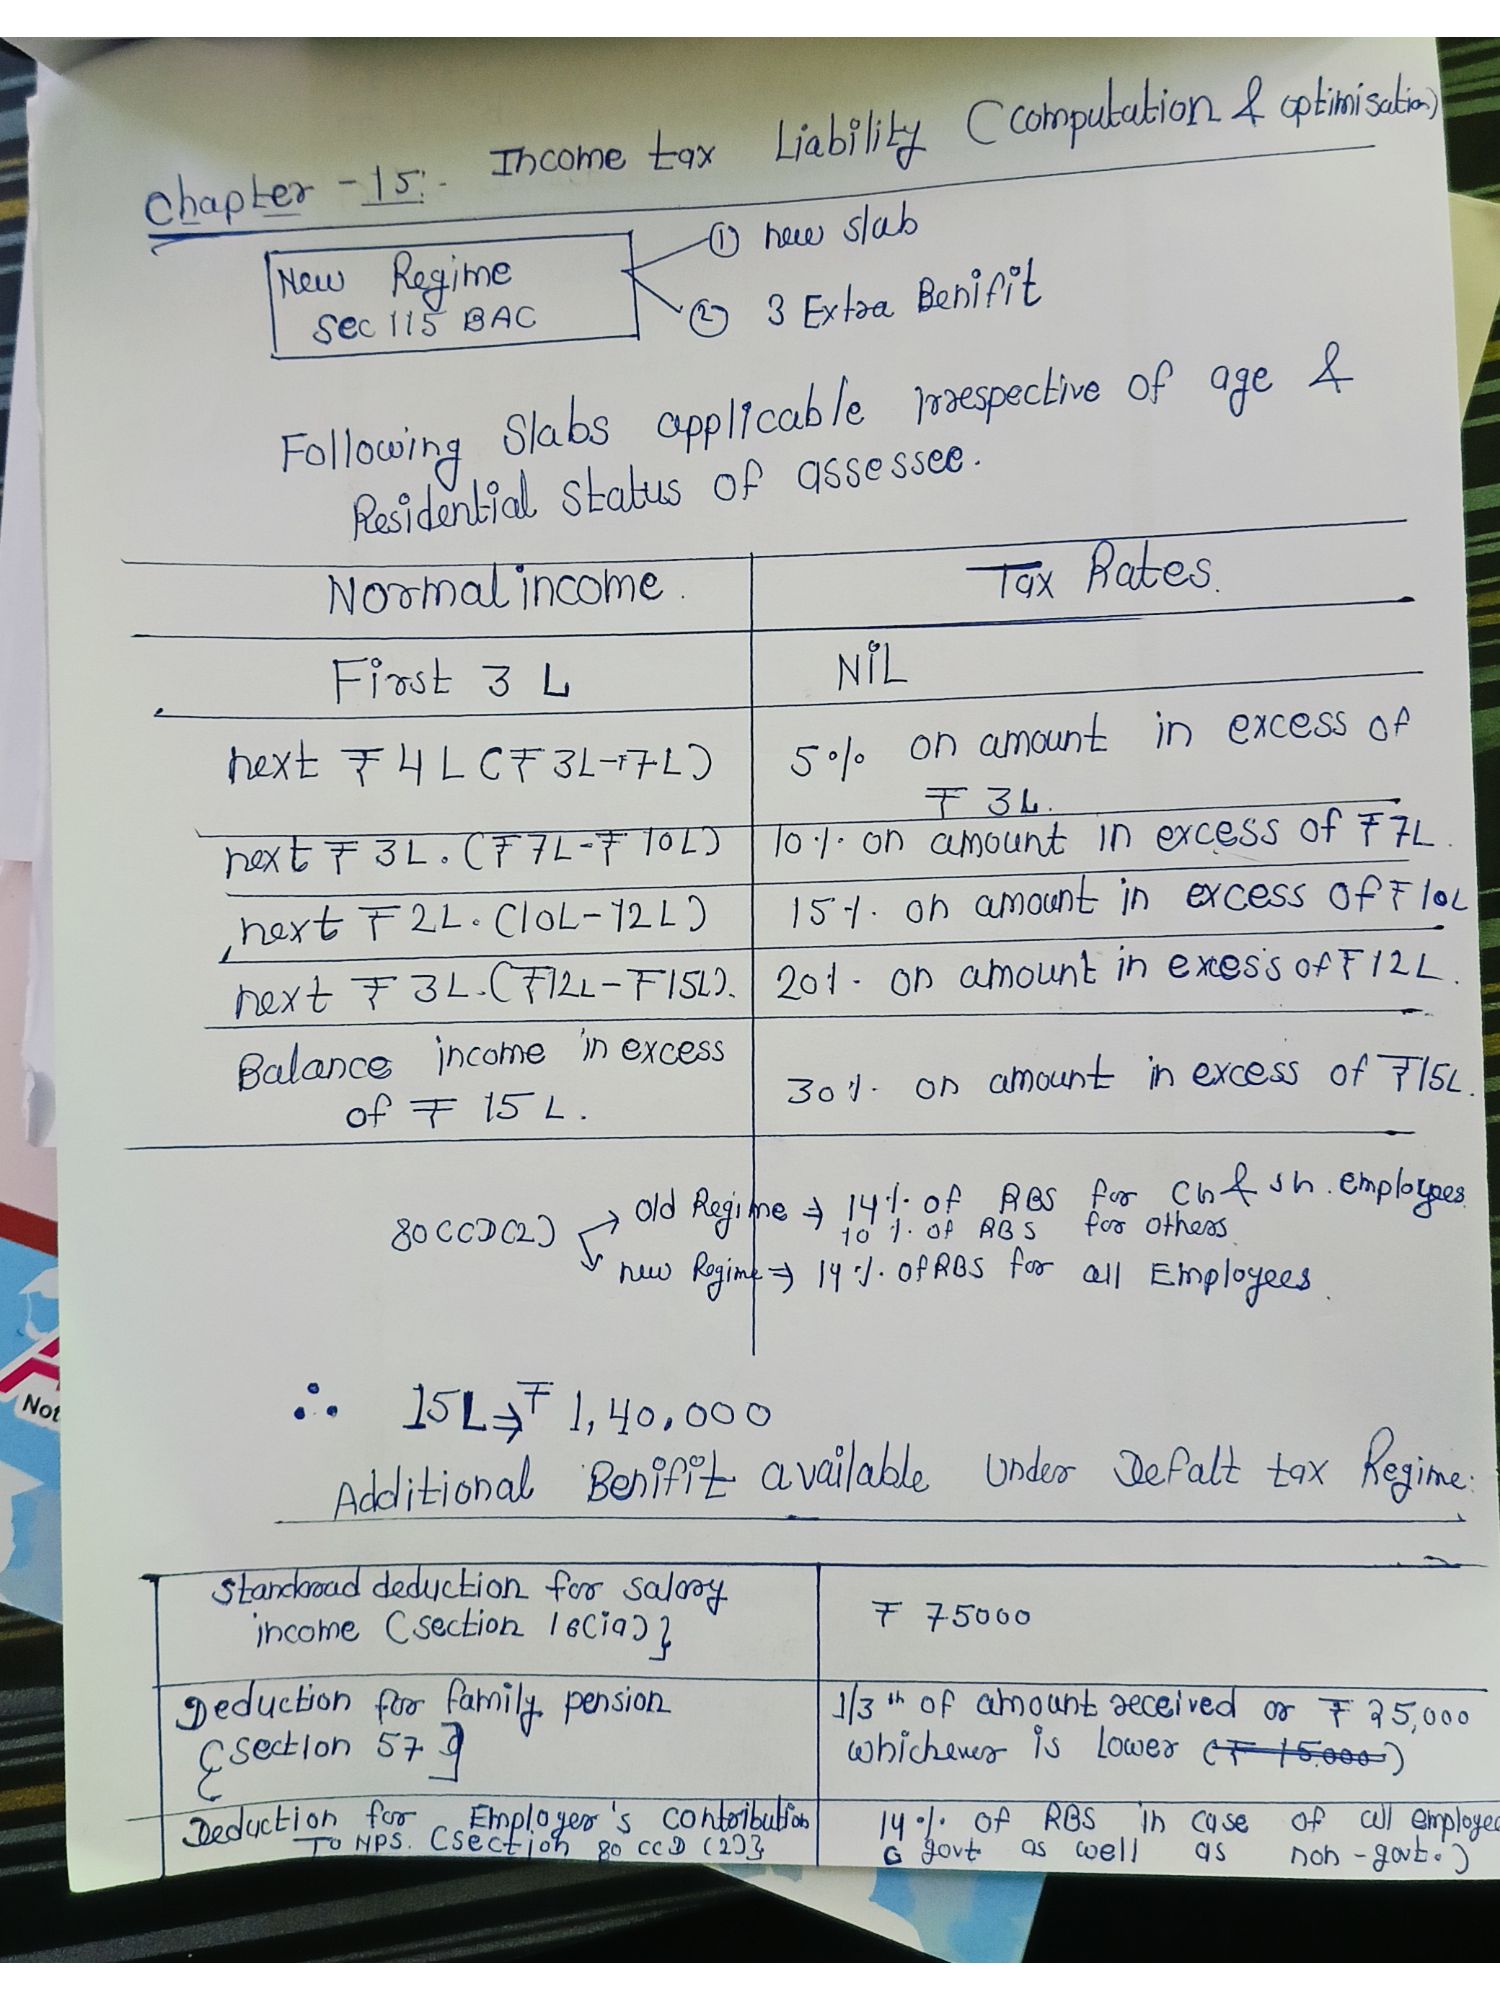 Chapter - 15:- Income tax Liability (computation & optimisation)
New Regime
Sec 115 BAC
① new slab
② 3 Extra Benifit
Following Slabs applicable irrespective of age &
Residential Status of assessee.
Normal income. Tax Rates.
First 3 L NiL
next ₹ 4 L (₹ 3L-₹7L) 5% on amount in excess of
₹ 3L.
next ₹ 3L. (₹7L-₹10L) 10% on amount in excess of ₹7L.
next ₹ 2L. (10L-12L) 15% on amount in excess of ₹10L
next ₹ 3L. (₹12L-₹15L). 20% on amount in excess of ₹12L.
Balance income in excess
of ₹ 15 L. 30% on amount in excess of ₹15L.
80CCD(2) → old Regime ⇒ 14% of RBS for CG & SG. employees
10% of RBS for others.
new Regime ⇒ 14% of RBS for all Employees.
∴ 15L ⇒ ₹ 1,40,000
Additional Benifit available Under Defalt tax Regime:
Standard deduction for salary
income (section 16(ia)} ₹ 75000
Deduction for family pension
{section 57} 1/3th of amount received or ₹ 25,000
whichever is lower (₹ 15,000)
Deduction for Employer's contribution
To NPS. (section 80 CCD (2)} 14% of RBS in case of all employee
( govt as well as non-govt.)
Not